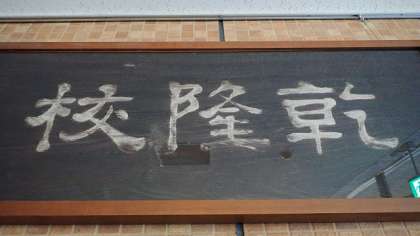 乾隆校